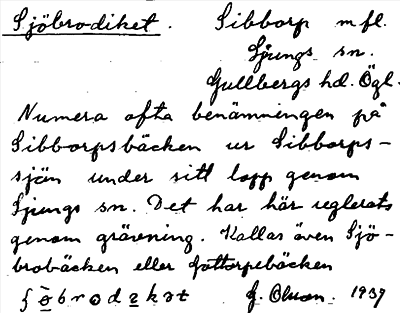 Sjöbrodiket. Sibborp m fl.
Ljungs sn.
Gullbergs hd. Ögl.
Numera ofta benämningen på
Sibborpsbäcken ur Sibborps-
sjön under sitt lopp genom
Ljungs sn. Det har här reglerats
genom grävning. Kallas även Sjö-
brobäcken eller Gottorpebäcken
1939